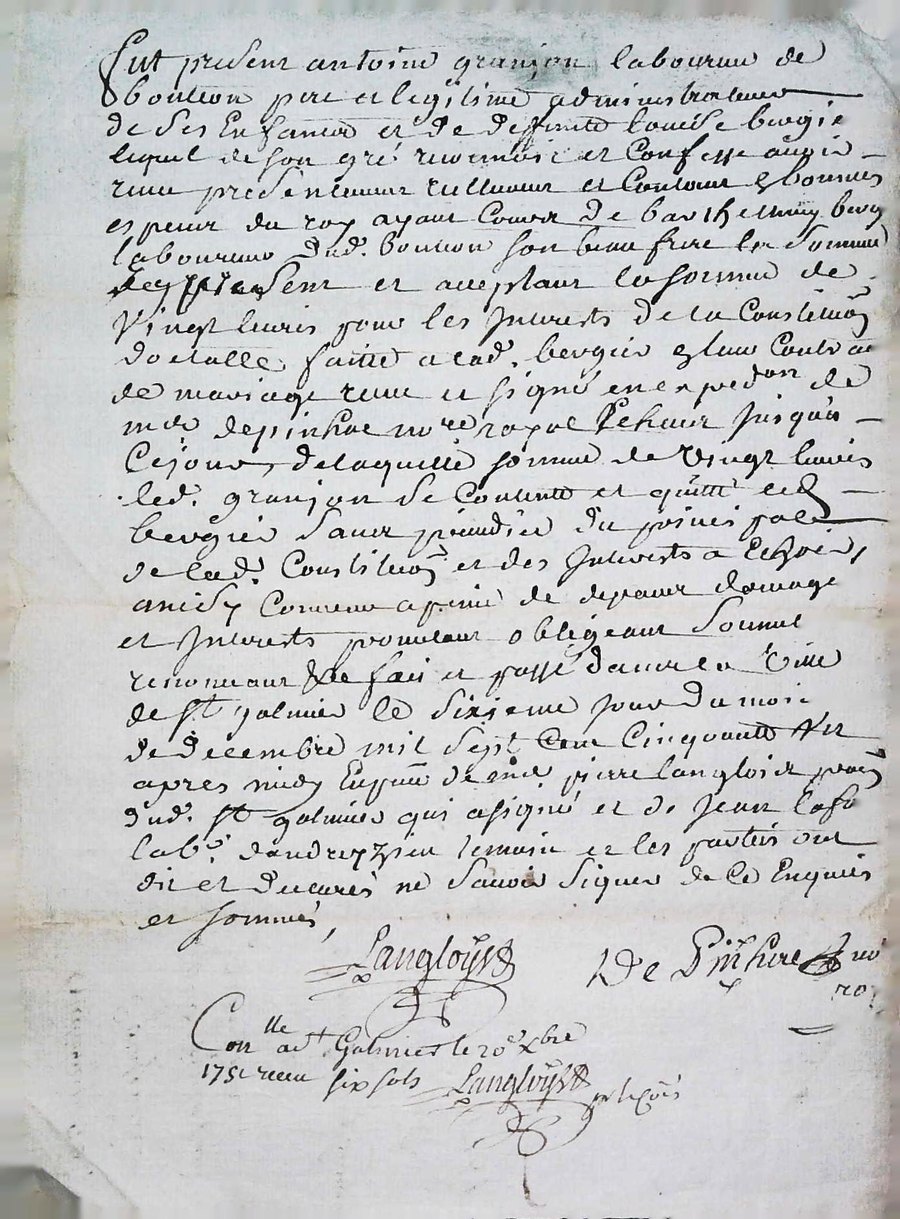 fut present antoine granjon laboureur de
bouteon pere et legitime administrateur
de ses Enfants et de deffunte louise bergie
lequel de son gré reconnoit et Confesse avoir
receu presentement reellement et Contant bonnes
especes du roy ayant Cours de barthelemy berg
laboureur dud. bouteon son beau frere
present et acceptant la somme de
Vingt livres pour les Interests de la Constituõn
dotalle faitte a lad. bergier Contrac
de mariage receu et signé en expedon de
me depinhac nore royal Jusqua
Cejour, de laquelle somme de Vingt livres
led. granjon se Contente et quitte led.
bergier sans prejudice du principal
de lad. Constituõn et des Interests a Echoir,
ainsy Convenu a peine de depans domage
et Interests promettant obligeant soumet
renonceant &c fait et passé dans la Ville
de st galmier le sixieme Jour du mois
de decembre mil sept Cent Cinquante
apres midy En presce de me pierre langlois
dud. st galmier qui a signé et de Jean
labr. temoin et les parties ont
dit et declarés ne savoir signer de Ce Enquis
et sommés,
Langloys De
Conlle a st Galmier le 20e xbre
1751 receu six sols Langloys